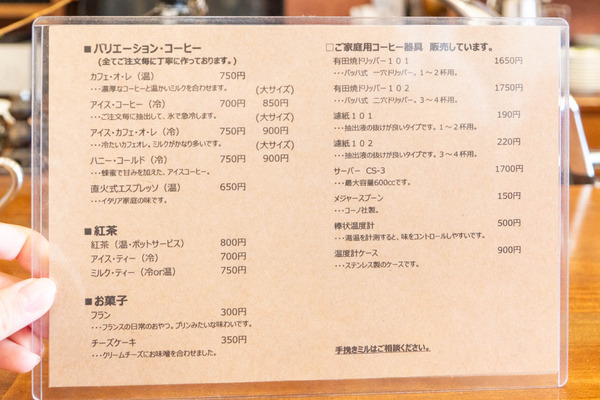 ■ バリエーション・コーヒー
(全てご注文毎に丁寧に作っております。)
カフェ・オ・レ（温） 750円
・・・濃厚なコーヒーと温かいミルクを合わせます。 (大サイズ)
アイス・コーヒー（冷） 700円 850円
・・・ご注文毎に抽出して、氷で急冷します。 (大サイズ)
アイス・カフェ・オ・レ（冷） 750円 900円
・・・冷たいカフェオレ。ミルクがかなり多いです。 (大サイズ)
ハニー・コールド（冷） 750円 900円
・・・蜂蜜で甘みを加えた、アイスコーヒー。
直火式エスプレッソ（温） 650円
・・・イタリア家庭の味です。
■ 紅茶
紅茶（温・ポットサービス） 800円
アイス・ティー（冷） 700円
ミルク・ティー（冷or温） 750円
■ お菓子
フラン 300円
・・・フランスの日常のおやつ。プリンみたいな味わいです。
チーズケーキ 350円
・・・クリームチーズにお味噌を合わせました。
□ ご家庭用コーヒー器具 販売しています。
有田焼ドリッパー１０１ 1650円
・・・バッハ式 一穴ドリッパー。１～２杯用。
有田焼ドリッパー１０２ 1750円
・・・バッハ式 二穴ドリッパー。３～４杯用。
濾紙１０１ 190円
・・・抽出液の抜けが良いタイプです。１～２杯用。
濾紙１０２ 220円
・・・抽出液の抜けが良いタイプです。３～４杯用。
サーバー CS-3 1700円
・・・最大容量600ccです。
メジャースプーン 150円
・・・コーノ社製。
棒状温度計 500円
・・・湯温を計測すると、味をコントロールしやすいです。
温度計ケース 900円
・・・ステンレス製のケースです。
手挽きミルはご相談ください。